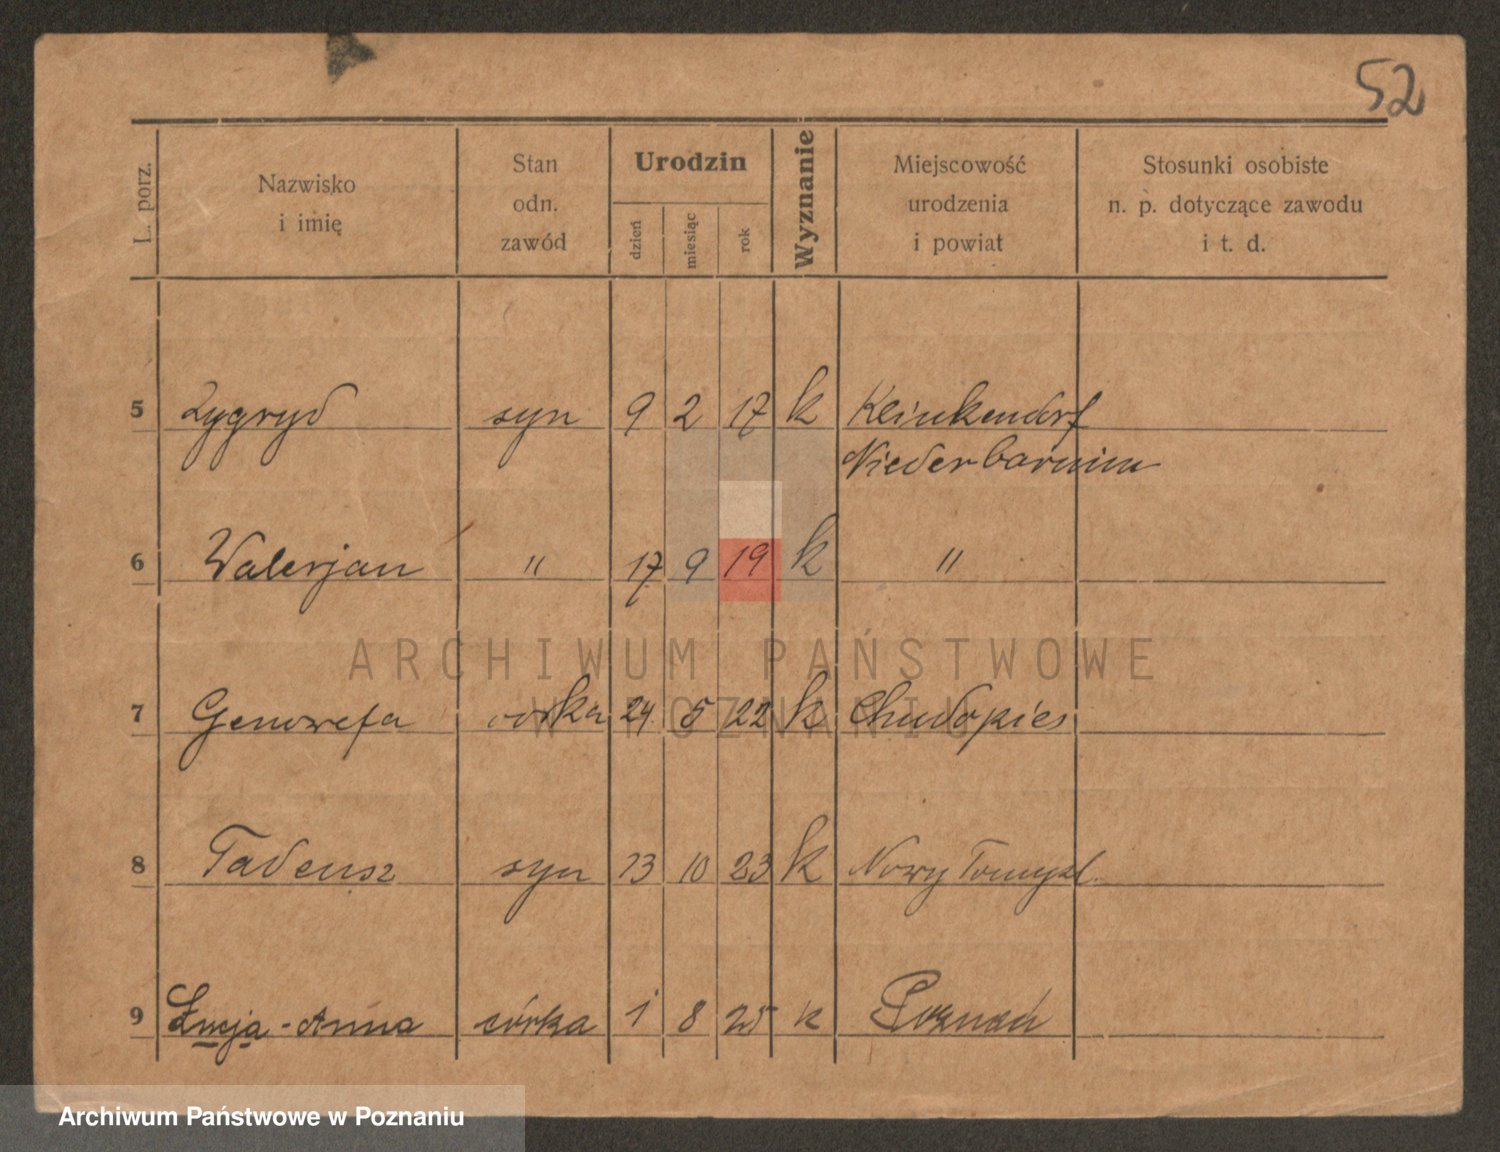 52
L. porz.
Nazwisko
i imię
Stan
odn.
zawód
Urodzin
dzień
miesiąc
rok
Wyznanie
Miejscowość
urodzenia
i powiat
Stosunki osobiste
n. p. dotyczące zawodu
i t. d.
5 Zygryd syn 9 2 17 k Klinkendorf
Niederbarnim
6 Walerjan " 17 9 19 k "
ARCHIWUM PAŃSTWOWE
W POZNANIU
7 Genowefa córka 24 5 22 k Chudopies
8 Tadeusz syn 13 10 23 k Nowy Tomyśl.
9 Łucja - Anna córka 1 8 25 k Poznań
Archiwum Państwowe w Poznaniu